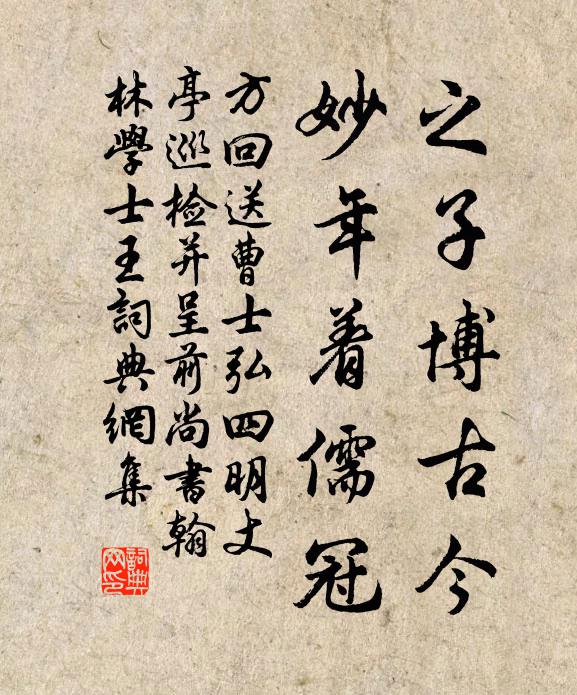 之子博古今
妙年着儒冠
方回送曹士弘四明丈
亭巡检并呈前尚書翰
林學士王詞典網集
詞典网印